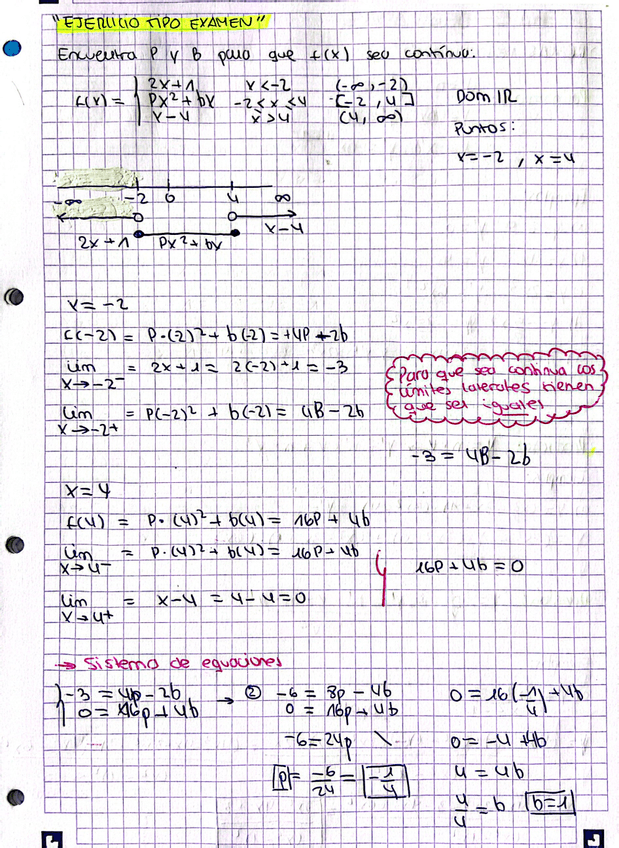 "EJERCICIO TIPO EXAMEN"
Encuentra P y B para que f(x) sea contínua:
2x+1 x<-2 (-∞,-2)
f(x) = Px²+bx -2≤x≤4 [-2, 4] Dom IR
x-4 x>4 (4, ∞)
Puntos:
x=-2 , x=4
-∞ -2 0 4 ∞
x-4
2x+1 Px²+bx
x=-2
f(-2) = P·(-2)² + b(-2) = +4P - 2b
lim = 2x+1 = 2(-2)+1 = -3
x→-2⁻
lim = P(-2)² + b(-2) = 4B - 2b
x→-2⁺
Para que sea contínua los
límites laterales tienen
que ser iguales
-3 = 4B - 2b
x=4
f(4) = P·(4)² + b(4) = 16P + 4b
lim = P·(4)² + b(4) = 16P + 4b
x→4⁻
16P + 4b = 0
lim = x-4 = 4-4 = 0
x→4⁺
→ Sistema de equaciones
-3 = 4p - 2b → ② -6 = 8p - 4b 0 = 16(-1/4) + 4b
0 = 16p + 4b 0 = 16p + 4b
-6 = 24p 0 = -4 + 4b
p = -6/24 = -1/4 4 = 4b
4/4 = b b=1